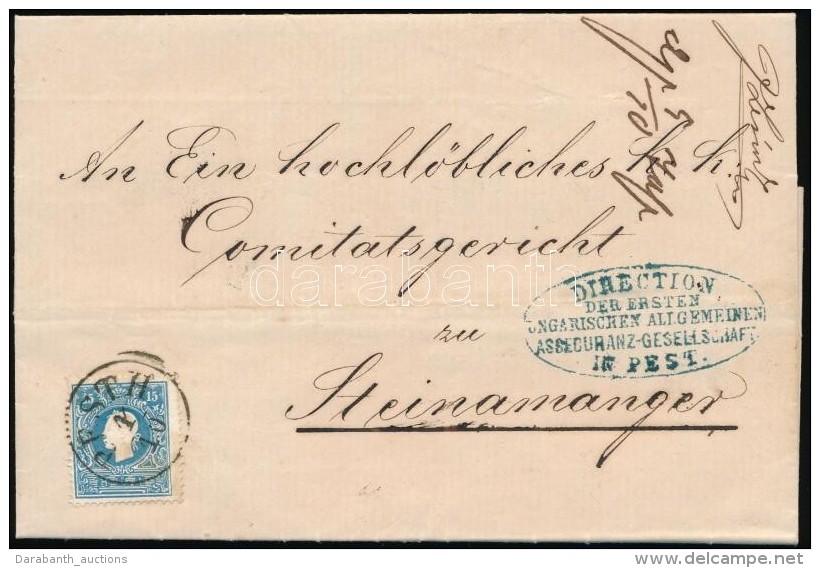 An Ein hochlöbliches k. k.
Comitatsgericht
zu
Steinamanger
DIRECTION
DER ERSTEN
UNGARISCHEN ALLGEMEINEN
ASSECURANZ-GESELLSCHAFT
IN PEST.
PESTH
15
darabanth
Darabanth_auctions
www.delcampe.net